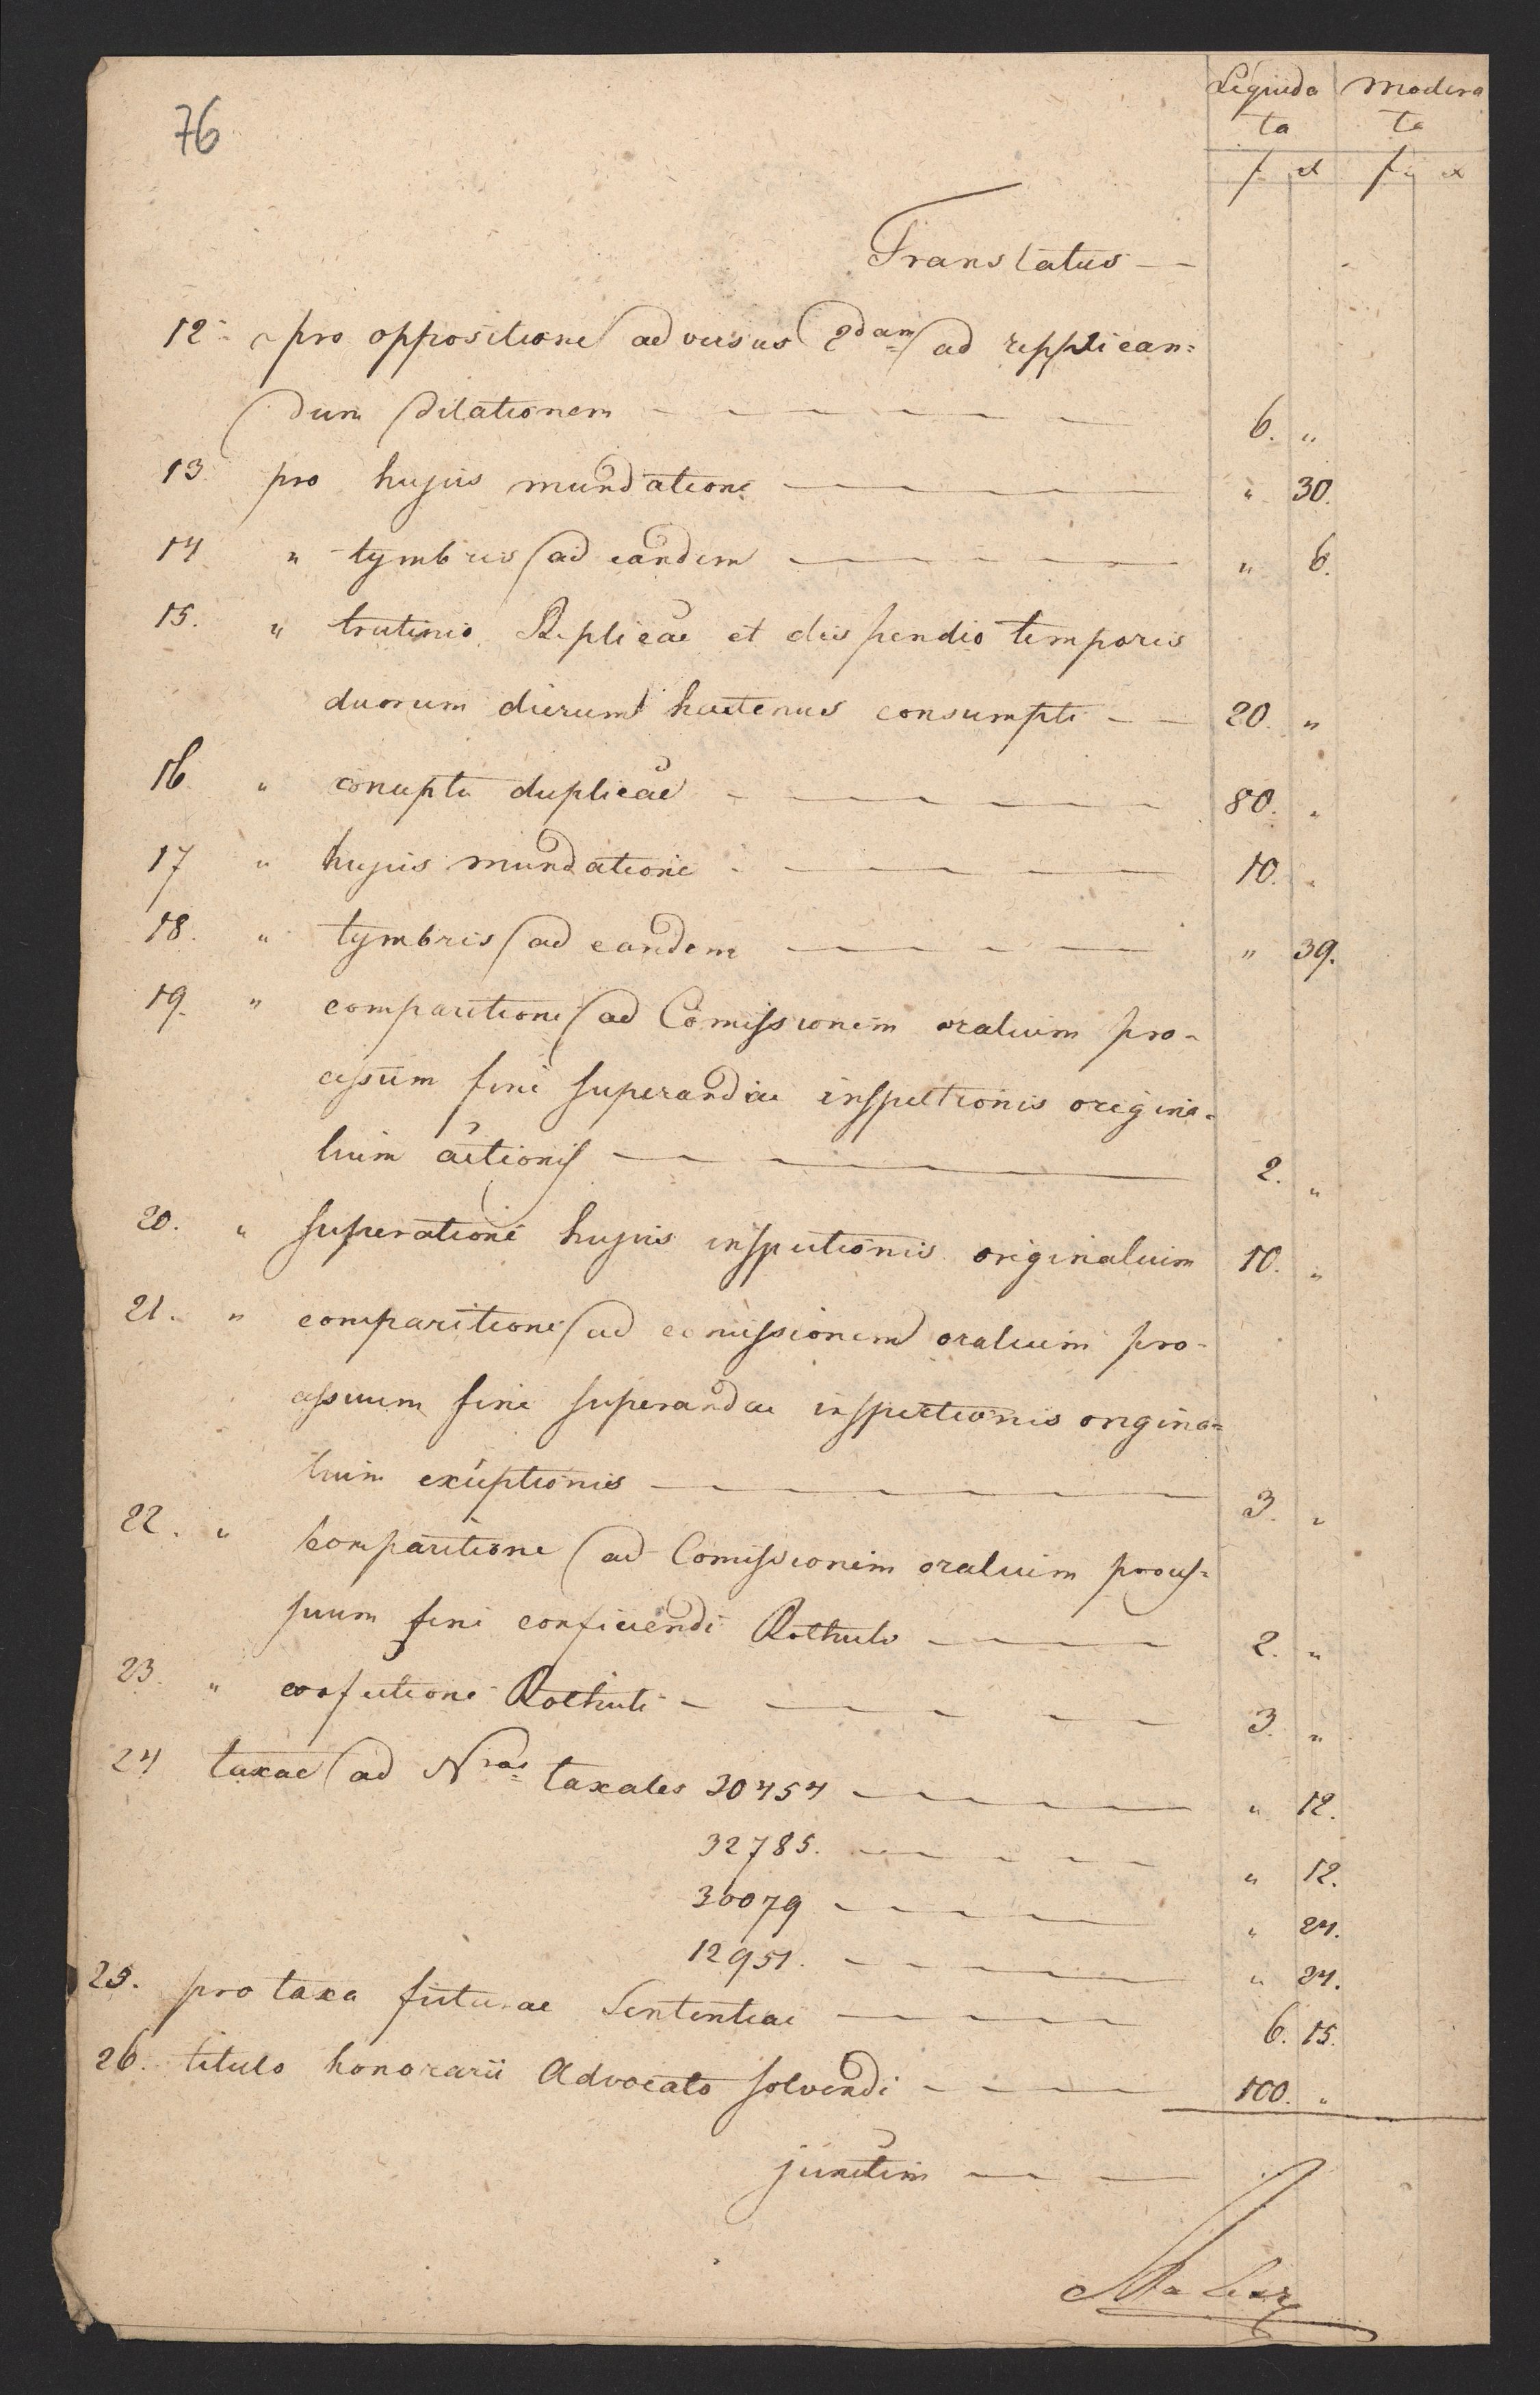 76
Liquida Modera
ta ta
f x f x
Translatus —
12. pro oppositione adversus 2dam ad repplican=
dum dilationem — 6. "
13. pro hujus mundatione — " 30.
14 " tymbris ad eandem — " 6.
15. " trutinio Replicae et dispendio temporis
duorum dierum hactenus consumpti — 20. "
16 " conceptu duplicae — 80. "
17 " hujus mundatione — 10. "
18. " tymbris ad eandem — " 39.
19. " comparitione ad Comissionem oralium pro-
cessum fine superandae inspectionis origina=
lium actionis — 2. "
20. " superatione hujus inspectionis originalium 10. "
21. " comparitione ad comissionem oralium pro-
cessuum fine superandae inspectionis origina=
lium exceptionis — 3. "
22. " comparitione ad Comissionem oralium proces=
suum fine conficiendi Rothuls — 2. "
23. " confectione Rothuli — 3. "
24 taxae ad Nras taxales 30454 — " 12.
32785. — " 12.
36079 — " 24.
12951. — " 24.
25. pro taxa futurae Sententiae — 6. 15.
26. titulo honorarii Advocato solvendi — 100. "
junctim —